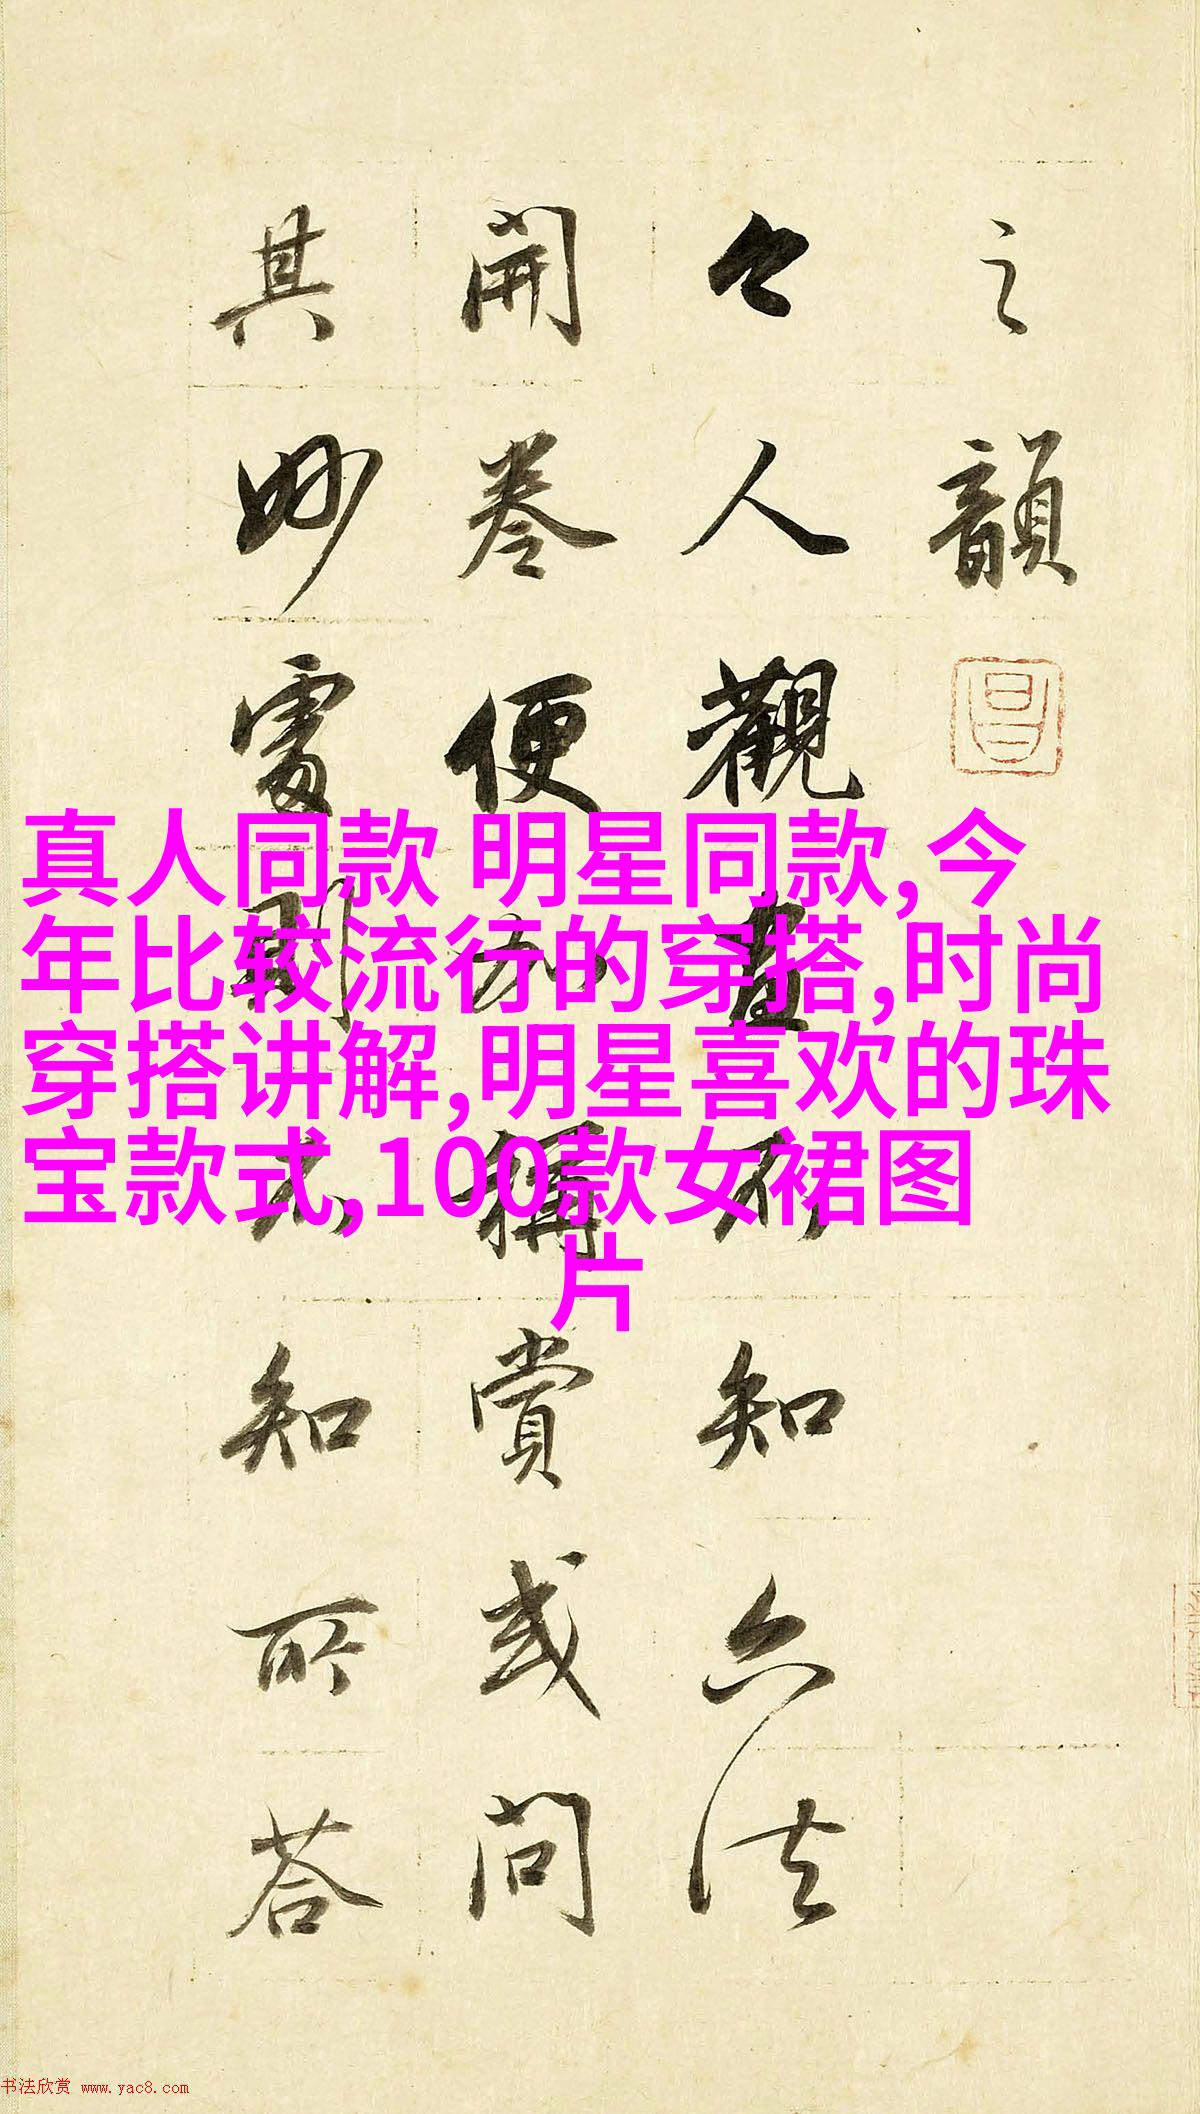 之韻
昌
今人觀畫不知六法
開卷便加稱賞或問
其妙處則不知所荅
真人同款 明星同款,今
年比较流行的穿搭,时尚
穿搭讲解,明星喜欢的珠
宝款式,100款女裙图
片
书法欣赏 www.yac8.com